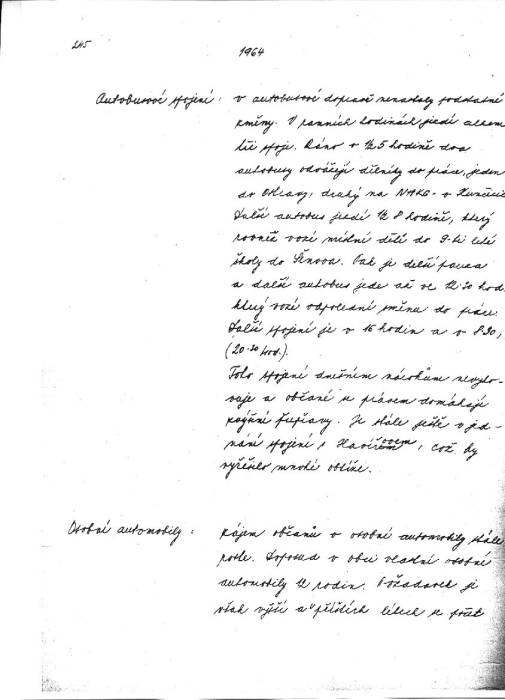 245
1964
Autobusové spojení:
v autobusové dopravě nenastaly podstatné
změny. V ranních hodinách jezdí celkem
tři spoje. Ráno v ½5 hodině dva
autobusy odvážejí dělníky do práce, jeden
do Ostravy, druhý na NHKG - v Kunčicích
Další autobus jezdí ½ 8 hodině, který
rovněž vozí místní děti do 9-ti leté
školy do Šenova. Pak je delší pauza
a další autobus jede až ve 12.30 hod.
který vozí odpolední směnu do práce.
Další spojení je v 16 hodin a v 8.30,
(20.30 hod.).
Toto spojení dnešním nárokům nevyho-
vuje a občané se právem domáhají
zajištění nápravy. Je stále ještě v jed-
nání spojení s Havířovem, což by
vyřešilo mnohé obtíže.
Osobní automobily:
Zájem občanů o osobní automobily stále
roste. Doposud v obci vlastní osobní
automobily 12 rodin. Požadavek je
však vyšší a v příštích létech se počet